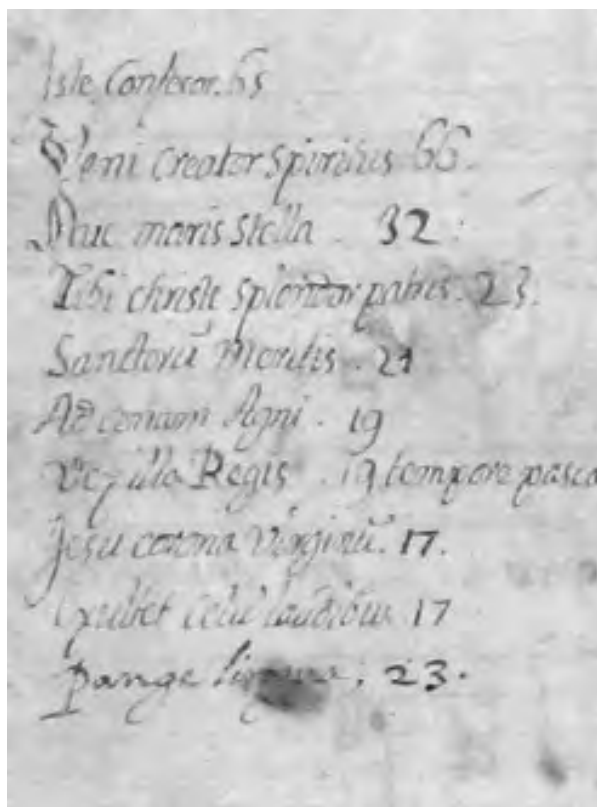 Iste Confesor. 65
Veni creator spiritus 66.
Aue maris stella . 32.
Tibi christe splendor patris. 23.
Sanctorũ meritis . 21
Ad cenam Agni . 19
Vexilla Regis . 19 tempore pasca
Jesu corona Virginũ. 17.
Exultet celũ laudibus 17
Pange lingua . 23.